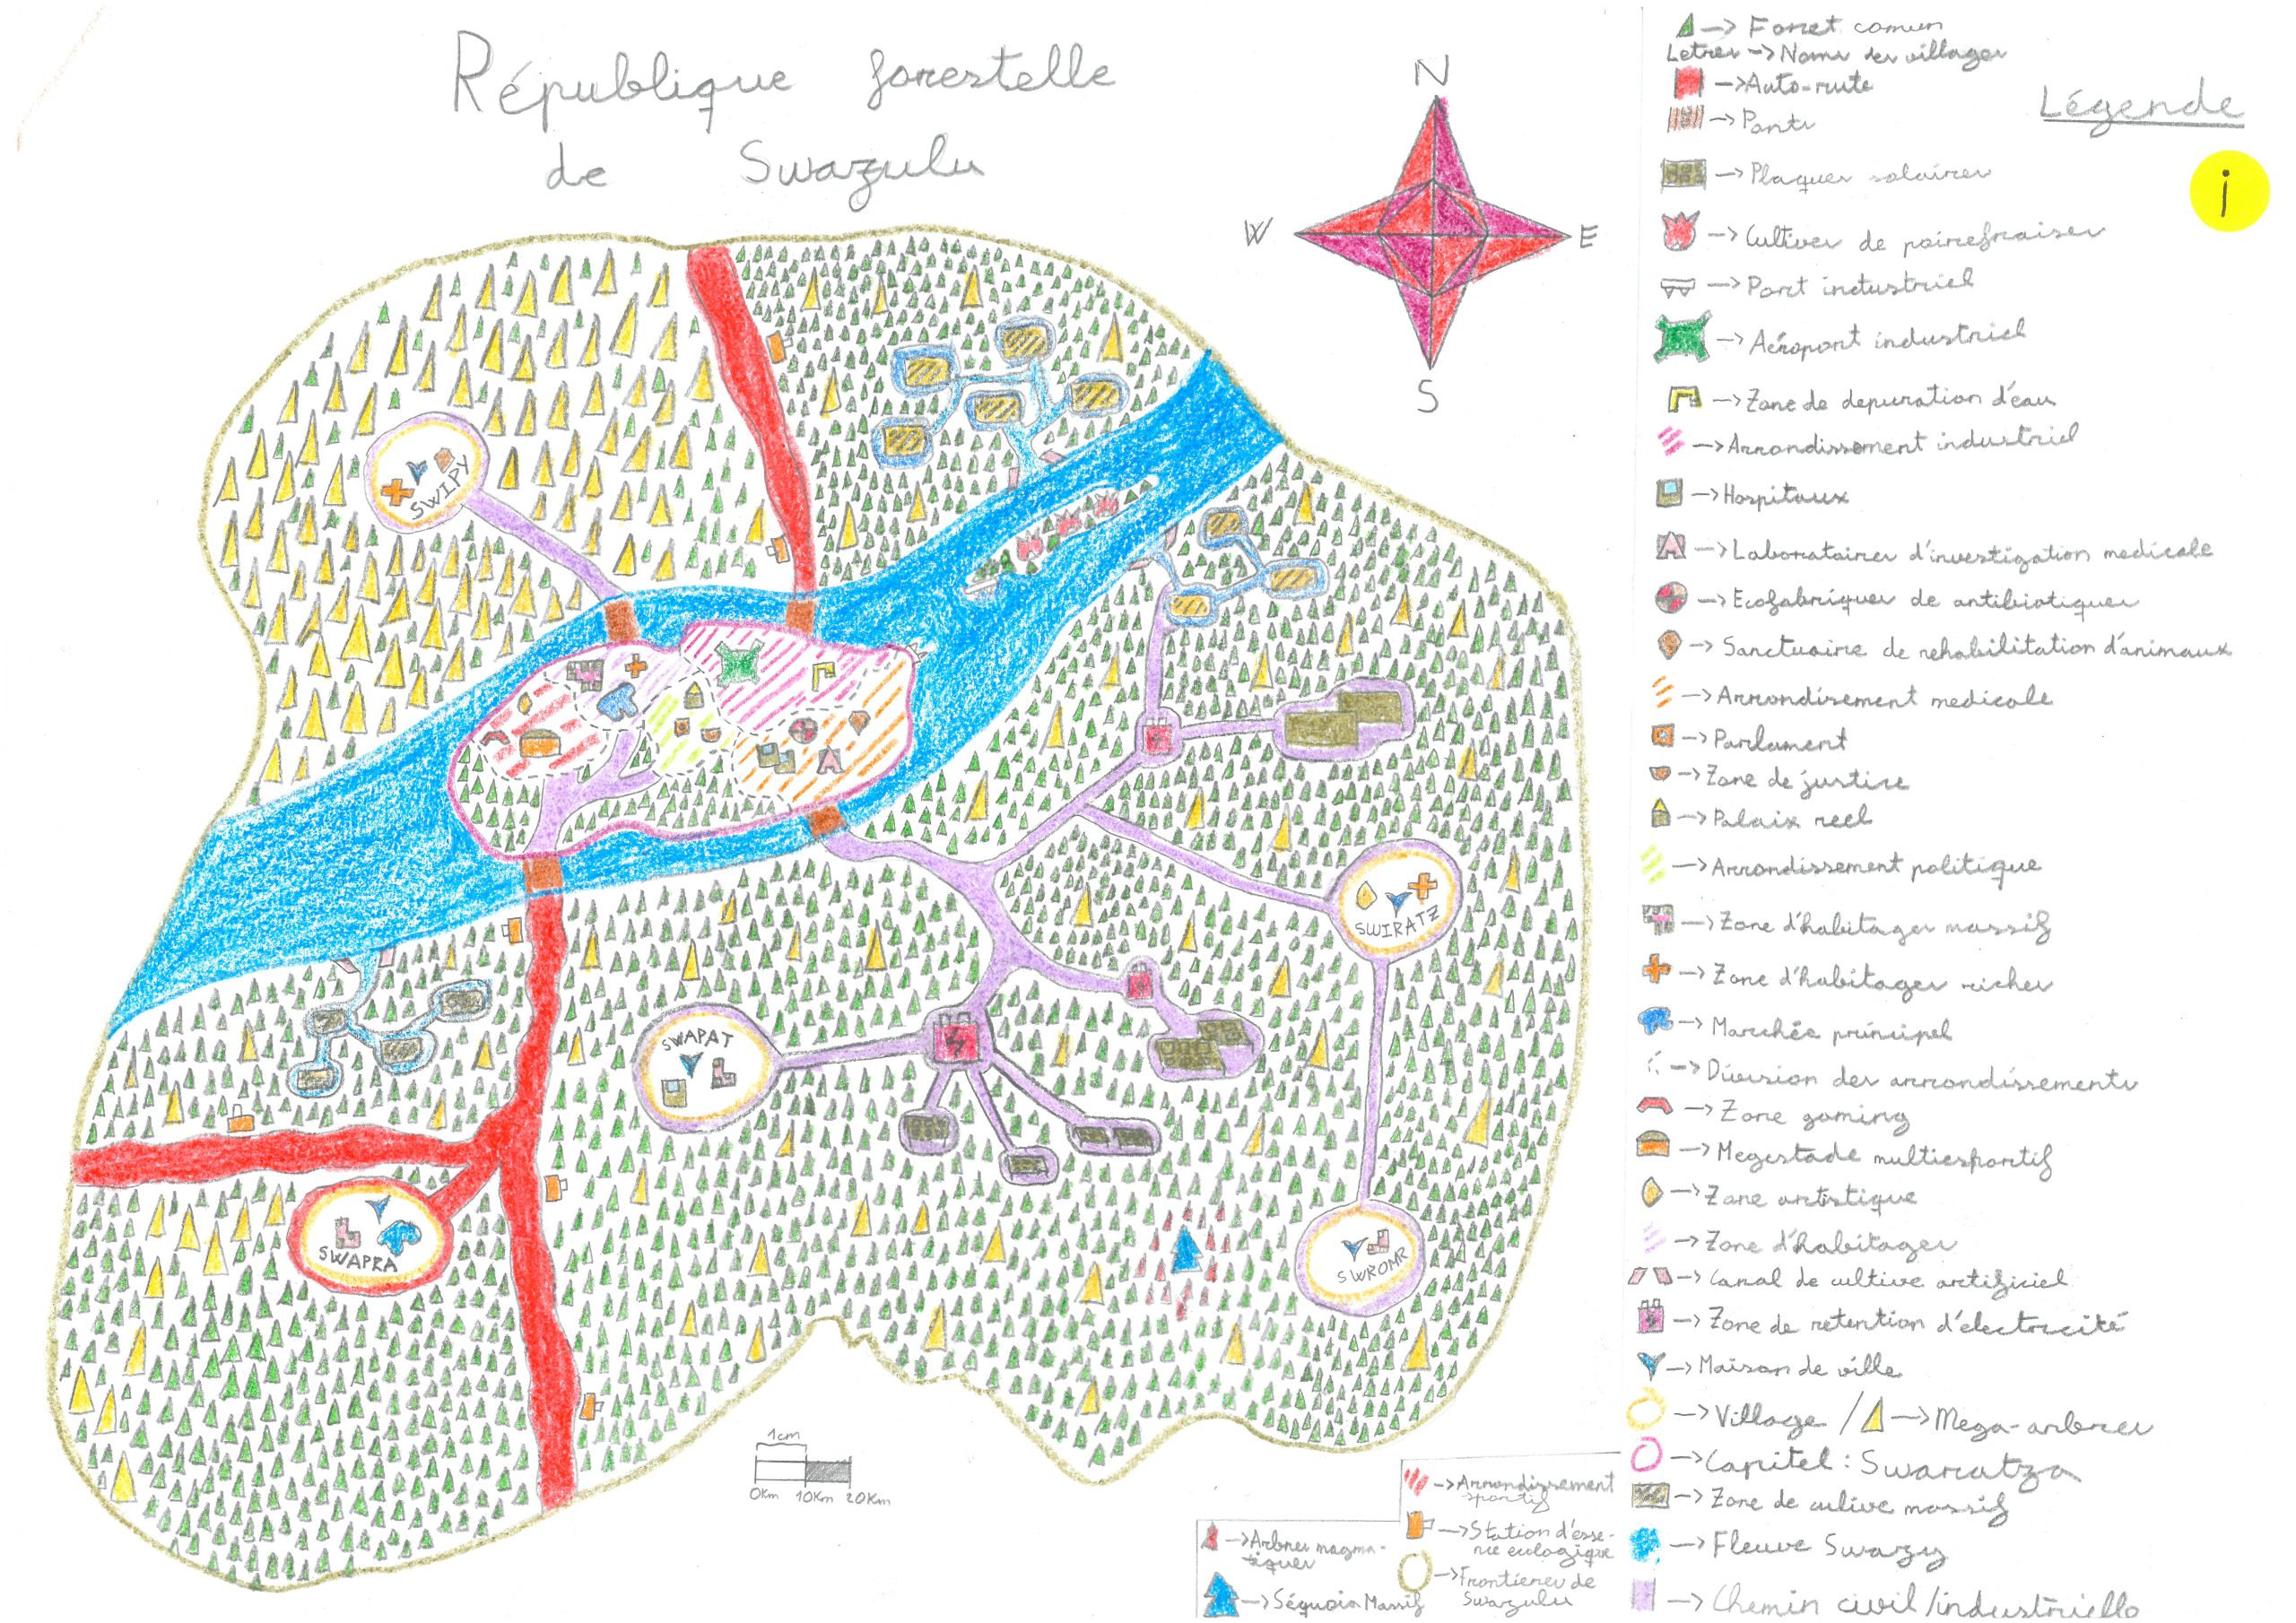 République forestelle
de Swazulu
N
W
E
S
SWIPY
SWIRATZ
SWAPAT
SWAPRA
SWROMR
1cm
0Km 10Km 20Km
Légende
i
→ Forret comun
Letres → Noms des villages
→ Auto-rute
→ Ponts
→ Plaques solaires
→ Cultives de poirefraises
→ Port industriel
→ Aéroport industriel
→ Zone de depuration d'eau
→ Arrondissement industriel
→ Hospitaux
→ Laboratoires d'investigation medicale
→ Ecofabriques de antibiotiques
→ Sanctuaire de rehabilitation d'animaux
→ Arrondisement medicale
→ Parlament
→ Zone de justice
→ Palaix reel
→ Arrondissement politique
→ Zone d'habitages massif
→ Zone d'habitages riches
→ Marchée principel
→ Division des arrondissements
→ Zone gaming
→ Megestade multiesportif
→ Zone artistique
→ Zone d'habitages
→ Canal de cultive artificiel
→ Zone de retention d'électricité
→ Maison de ville
→ Village / → Mega-arbres
→ Capitel : Swaratza
→ Zone de culive massif
→ Fleuve Swazy
→ Chemin civil/industrielle
→ Arrondissement
sportif
→ Station d'esse-
nce ecologique
→ Frontieres de
Swazulu
→ Arbres magma-
tiques
→ Séquoia Massif